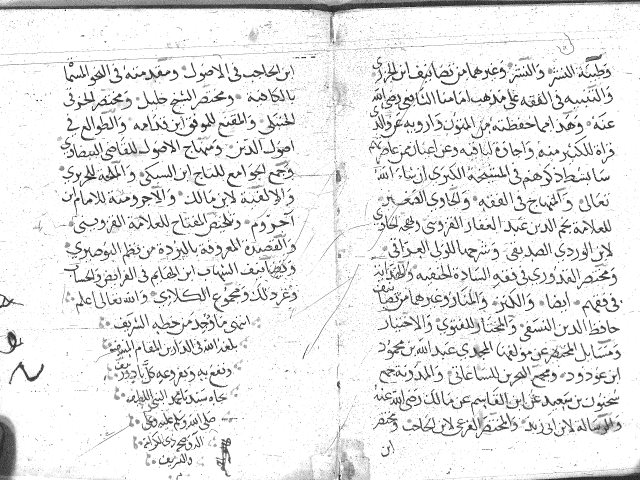 وطيبة النشر والنشر وغيرهما من تصانيف ابن الجزري
والتنبيه في الفقه على مذهب امامنا الشافعي رضي الله
عنه وهذا مما حفظته من المتون وارويه عن والدي
قراة للكثير منه واجازة لباقيه وعن اعيان من علماء
سأستطرد ذكرهم في المشيخة الكبرى ان شاء الله
تعالى والمنهاج في الفقه والحاوي الصغير
للعلامة نجم الدين عبد الغفار القزويني وبهجة الحاوي
لابن الوردي الصديقي وشرحها للولي العراقي
ومختصر القدوري في فقه السادة الحنفية والهداية
في فقههم ايضا والكنز والمنار وغيرها من تصانيف
حافظ الدين النسفي والمختار للفتوى والاختيار
ومسايل المختصر عن مولفها المجدي عبد الله بن محمود
ابن مودود ومجمع البحرين للساعاتي والمدونة جمع
سحنون بن سعيد عن ابن القاسم عن مالك رضي الله عنه
والرسالة لابن ابي زيد والمختصر الفرعي لابن الحاجب ومختصر
ابن
ابن الحاجب في الاصول ومقدمته في النحو المسماة
بالكافية ومختصر الشيخ خليل ومختصر الخرقي
الحنبلي والمقنع للموفق ابن قدامة والطوالع في
اصول الدين ومنهاج الاصول للقاضي البيضاوي
وجمع الجوامع للتاج ابن السبكي والملحة للحريري
والالفية لابن مالك والآجرومية للامام ابن
آجروم وتلخيص المفتاح للعلامة القزويني
والقصيدة المعروفة بالبردة من نظم البوصيري
وتصانيف الشهاب ابن الهايم في الفرايض والحساب
وغير ذلك ومجموع الكلاءي والله تعالى اعلم
انتهى ما وجد من خطه الشريف
بلغه الله في الدارين المقام المنيف
ونفع به وبفروعه كل
بجاه سيدنا محمد النبي
صلى الله وسلم عليه وعلى
اله وصحبه ذوي الكرامة
والتشريف
م